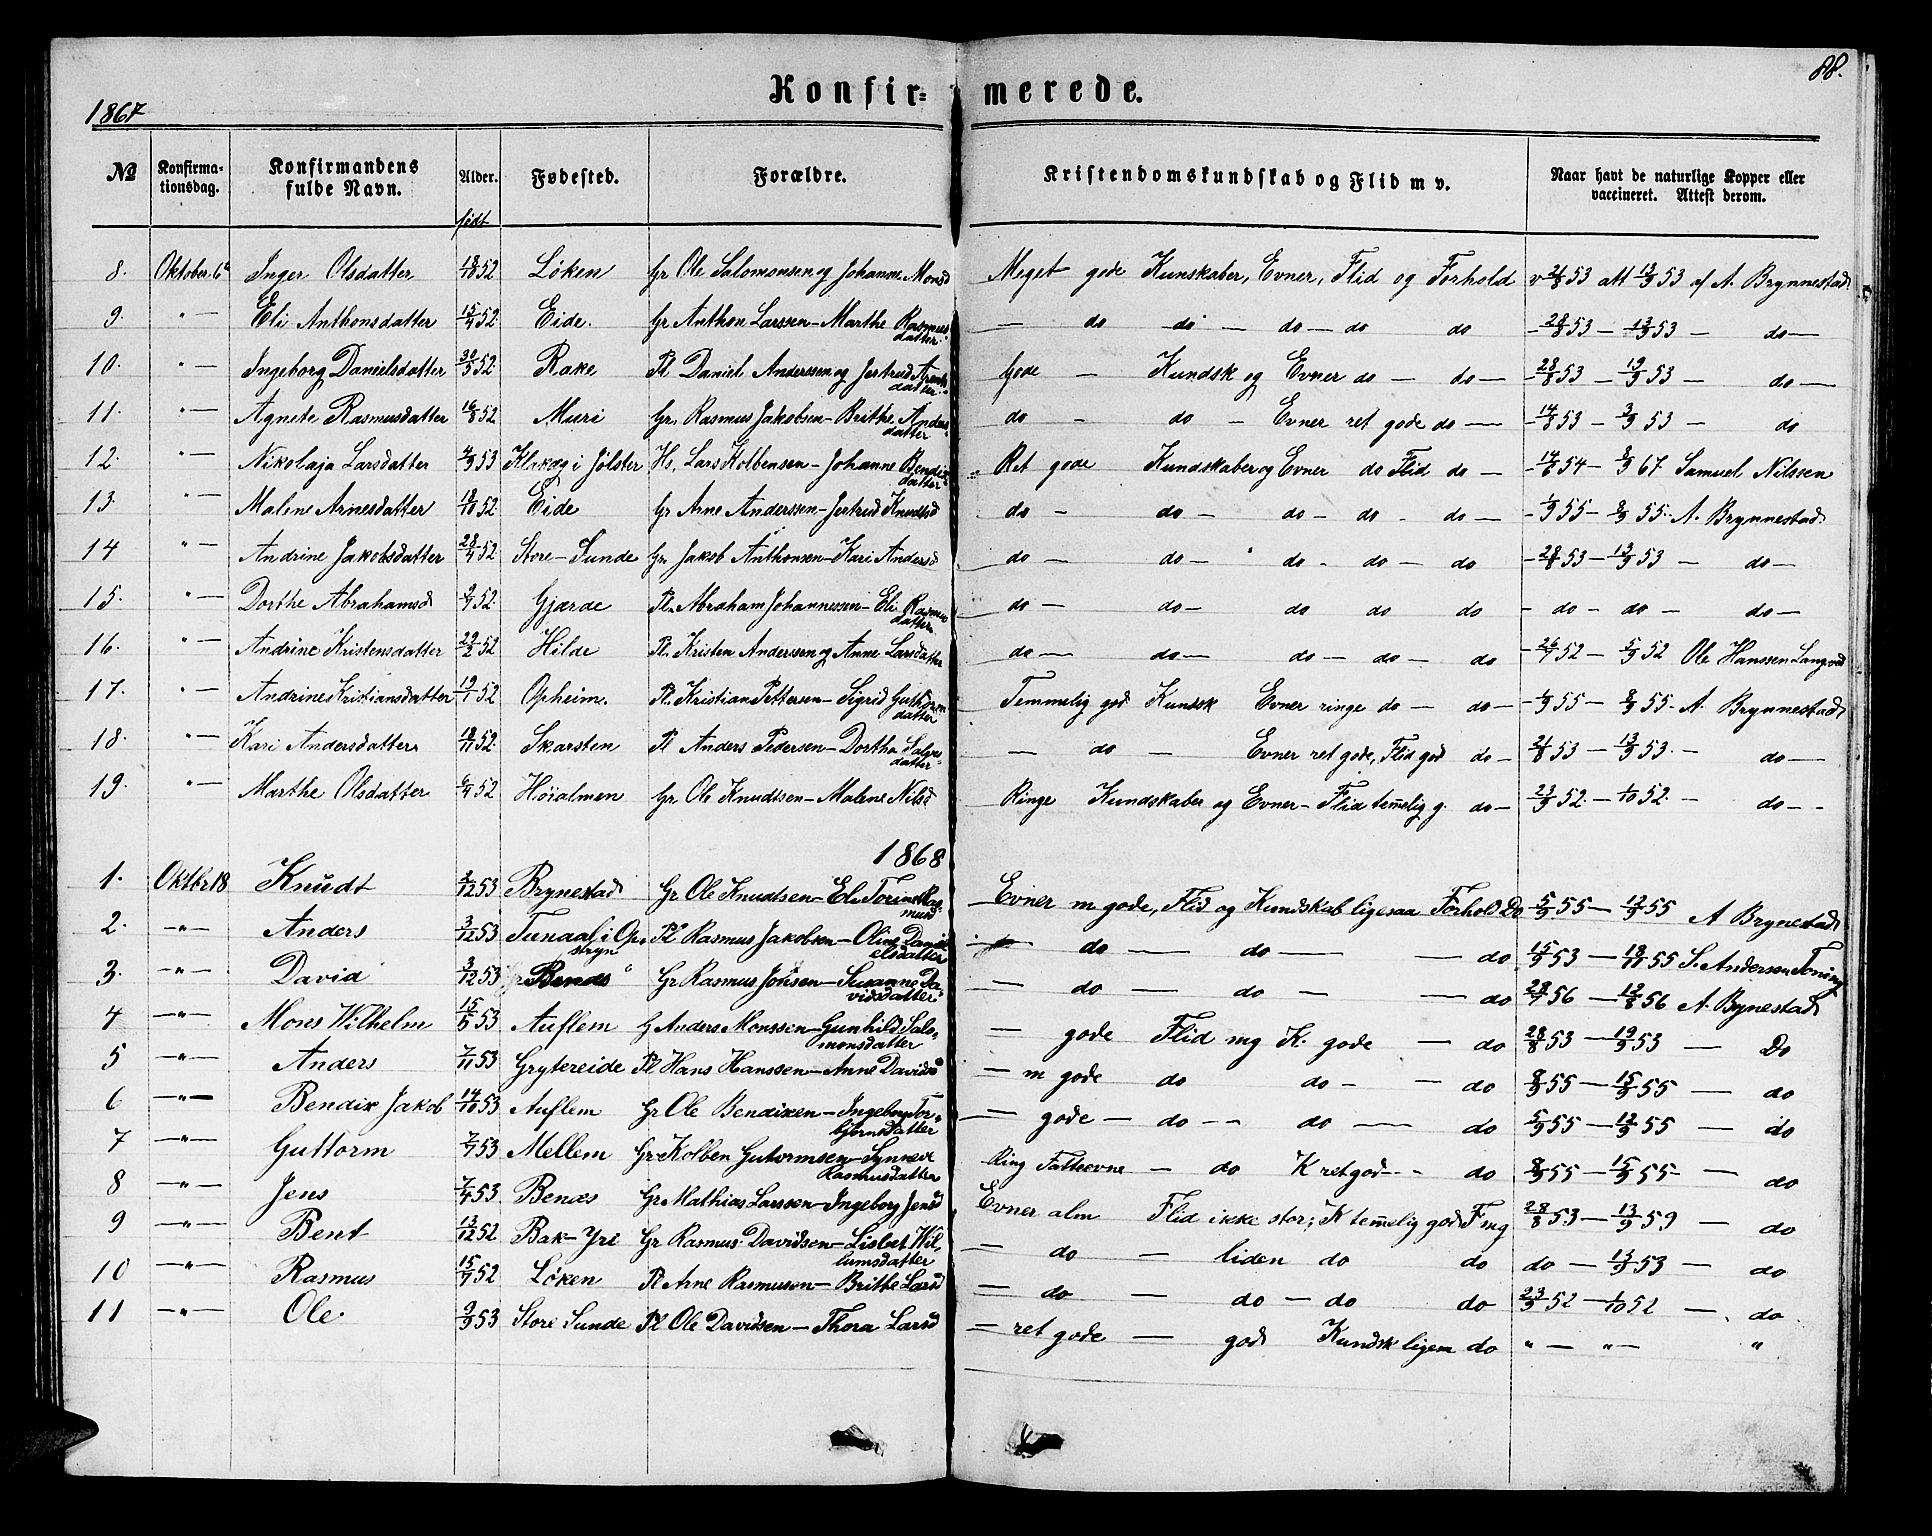 88.
Konfirmerede.
1867
№ Konfirmationsdag. Konfirmandens fulde Navn. Alder. født Fødested. Forældre. Kristendomskundskab og Flid m v. Naar havt de naturlige Kopper eller vaccineret. Attest derom.
8. Oktober 6te Inger Olsdatter 18/10 52 Löken Gr Ole Salomonsen og Johanne Monsd Meget gode Kunskaber, Evner, Flid og Forhold v 21/8 53 att 13/9 53 af A. Brynnestad
9. " — Eli Anthonsdatter 15/4 52 Eide. Gr Anthon Larssen – Marthe Rasmusdatter — do do — do — do do – 28/8 53 — 13/9 53 — do —
10. " — Ingeborg Danielsdatter 30/5 52 Rake Pl Daniel Anderssen og Jertrud datter Gode — Kundsk og Evner do — do — – 28/8 53 — 19/9 53 — do —
11. " — Agnete Rasmusdatter 16/8 52 Muri Gr. Rasmus Jakobsen – Brithe Andersdatter do – do – Evner ret gode do — – 14/8 53 – 3/9 53 – do
12. " — Nikolaja Larsdatter 4/3 53 Klakeg i Jölster Hs. Lars Kolbensen – Johanne Bendixdatter Ret gode Kundskaber og Evner do Flid do — – 14/6 54 – 8/9 67 Samuel Nilssen
13. " — Malene Arnesdatter 18/10 52. Eide Gr Arne Anderssen – Jertrud Knudtsd do — do – do – do – do — – 1/9 55 – 8/9 55. A. Brynnestad
14 " — Andrine Jakobsdatter 28/4 52 Store – Sunde Gr. Jakob Anthonsen – Kari Andersd do — do – do – do – do – 28/8 53 — 13/9 53 — do —
15. " — Dorthe Abrahamsd 9/7 52. Gjærde Pl. Abraham Johannessen – Eli Rasmusdatter do — do — do do do – do – do – do —
16. " — Andrine Kristensdatter 29/2 52 Hilde Pl. Kristen Anderssen og Anne Larsdatter do — do — do — do — do – 26/7 52 – 5/9 52 Ole Hanssen Langved
17. " — Andrine Kristiansdatter 19/1 52 Opheim. Pl. Kristian Pettersen – Sigrid Guthormdatter Temmelig god Kundsk Evner ringe do — do – 1/9 55 – 8/9 55. A. Brynnestad
18. " — Kari Andersdatter 18/11 52. Skarsten Pl Anders Pedersen – Dorthe datter — do — Evner ret gode, Flid god do — 21/8 53 — 13/9 53. – do —
19. " — Marthe Olsdatter 6/4 52 Höialmen Gr Ole Knudtsen – Malene Nilsd Ringe Kundskaber og Evner – Flid tem̄elig g. do — 23/9 52. – 1/10 52. – do —
1868
1. Oktbr 18 Knudt 2/12 53 Brynestad Gr Ole Knudtsen – Torine Rasmusd Evner m gode, Flid og Kundskab ligesaa Forhold Do 5/9 55 — 12/9 55 A Brynestad
2. – " – Anders 3/12 53 Tunaal i Opstryn Pl Rasmus Jakobsen – Oline Danielsdatter do — do — do 15/9 53 — 18/11 55 S. Anderssen Toning
3. – " – David 3/12 53 Benæs Gr Rasmus Jonsen – Susanne Davidsdatter — do — do — — do 28/7 56 — 12/8 56 A. Brynestad
4 – " – Mons Wilhelm 15/5 53 Auflem G Anders Monssen – Gunhild Salomonsdatter — gode Flid mg K. gode — do 28/8 53 — 19/9 53 — Do
5 – " – Anders 7/11 53 Grytereide Pl Hans Hanssen – Anne Davidsd — m gode do do – — do 8/9 55 — 15/9 55 — do
6 – " – Bendix Jakob 14/10 53 Auflem Gr Ole Bendixen – Ingeborg Torbjörnsdatter — gode — do – – do — do 5/9 55 — 12/9 55 — do
7 – " – Guttorm 7/9 53 Mellem Gr Kolben Gutormsen – Synneve Rasmusdatter Ring Fatteevne — do K ret god – – do 8/9 55 — 15/9 55 — do
8 – " – Jens 7/4 53 Benæs Gr Mathias Larssen – Ingeborg Jensd Evner alm Flid ikke stor; K tem̄elig god F mg 28/8 53 — 13/9 59 — do
9 – " – Bent 13/12 52 Bak – Yri Gr Rasmus Davidsen – Lisbet Willumsdatter — do — liden do do do — 13/9 53 — do
10 – " – Rasmus 15/7 52 Löken Pl Arne Rasmusen – Brithe Larsd — do — do — do do 23/9 52 — 1/10 52 — do
11 – " – Ole 9/9 53 Store Sunde Pl Ole Davidsen – Thora Larsd — ret gode — god Kundsk ligesa do " — " — "